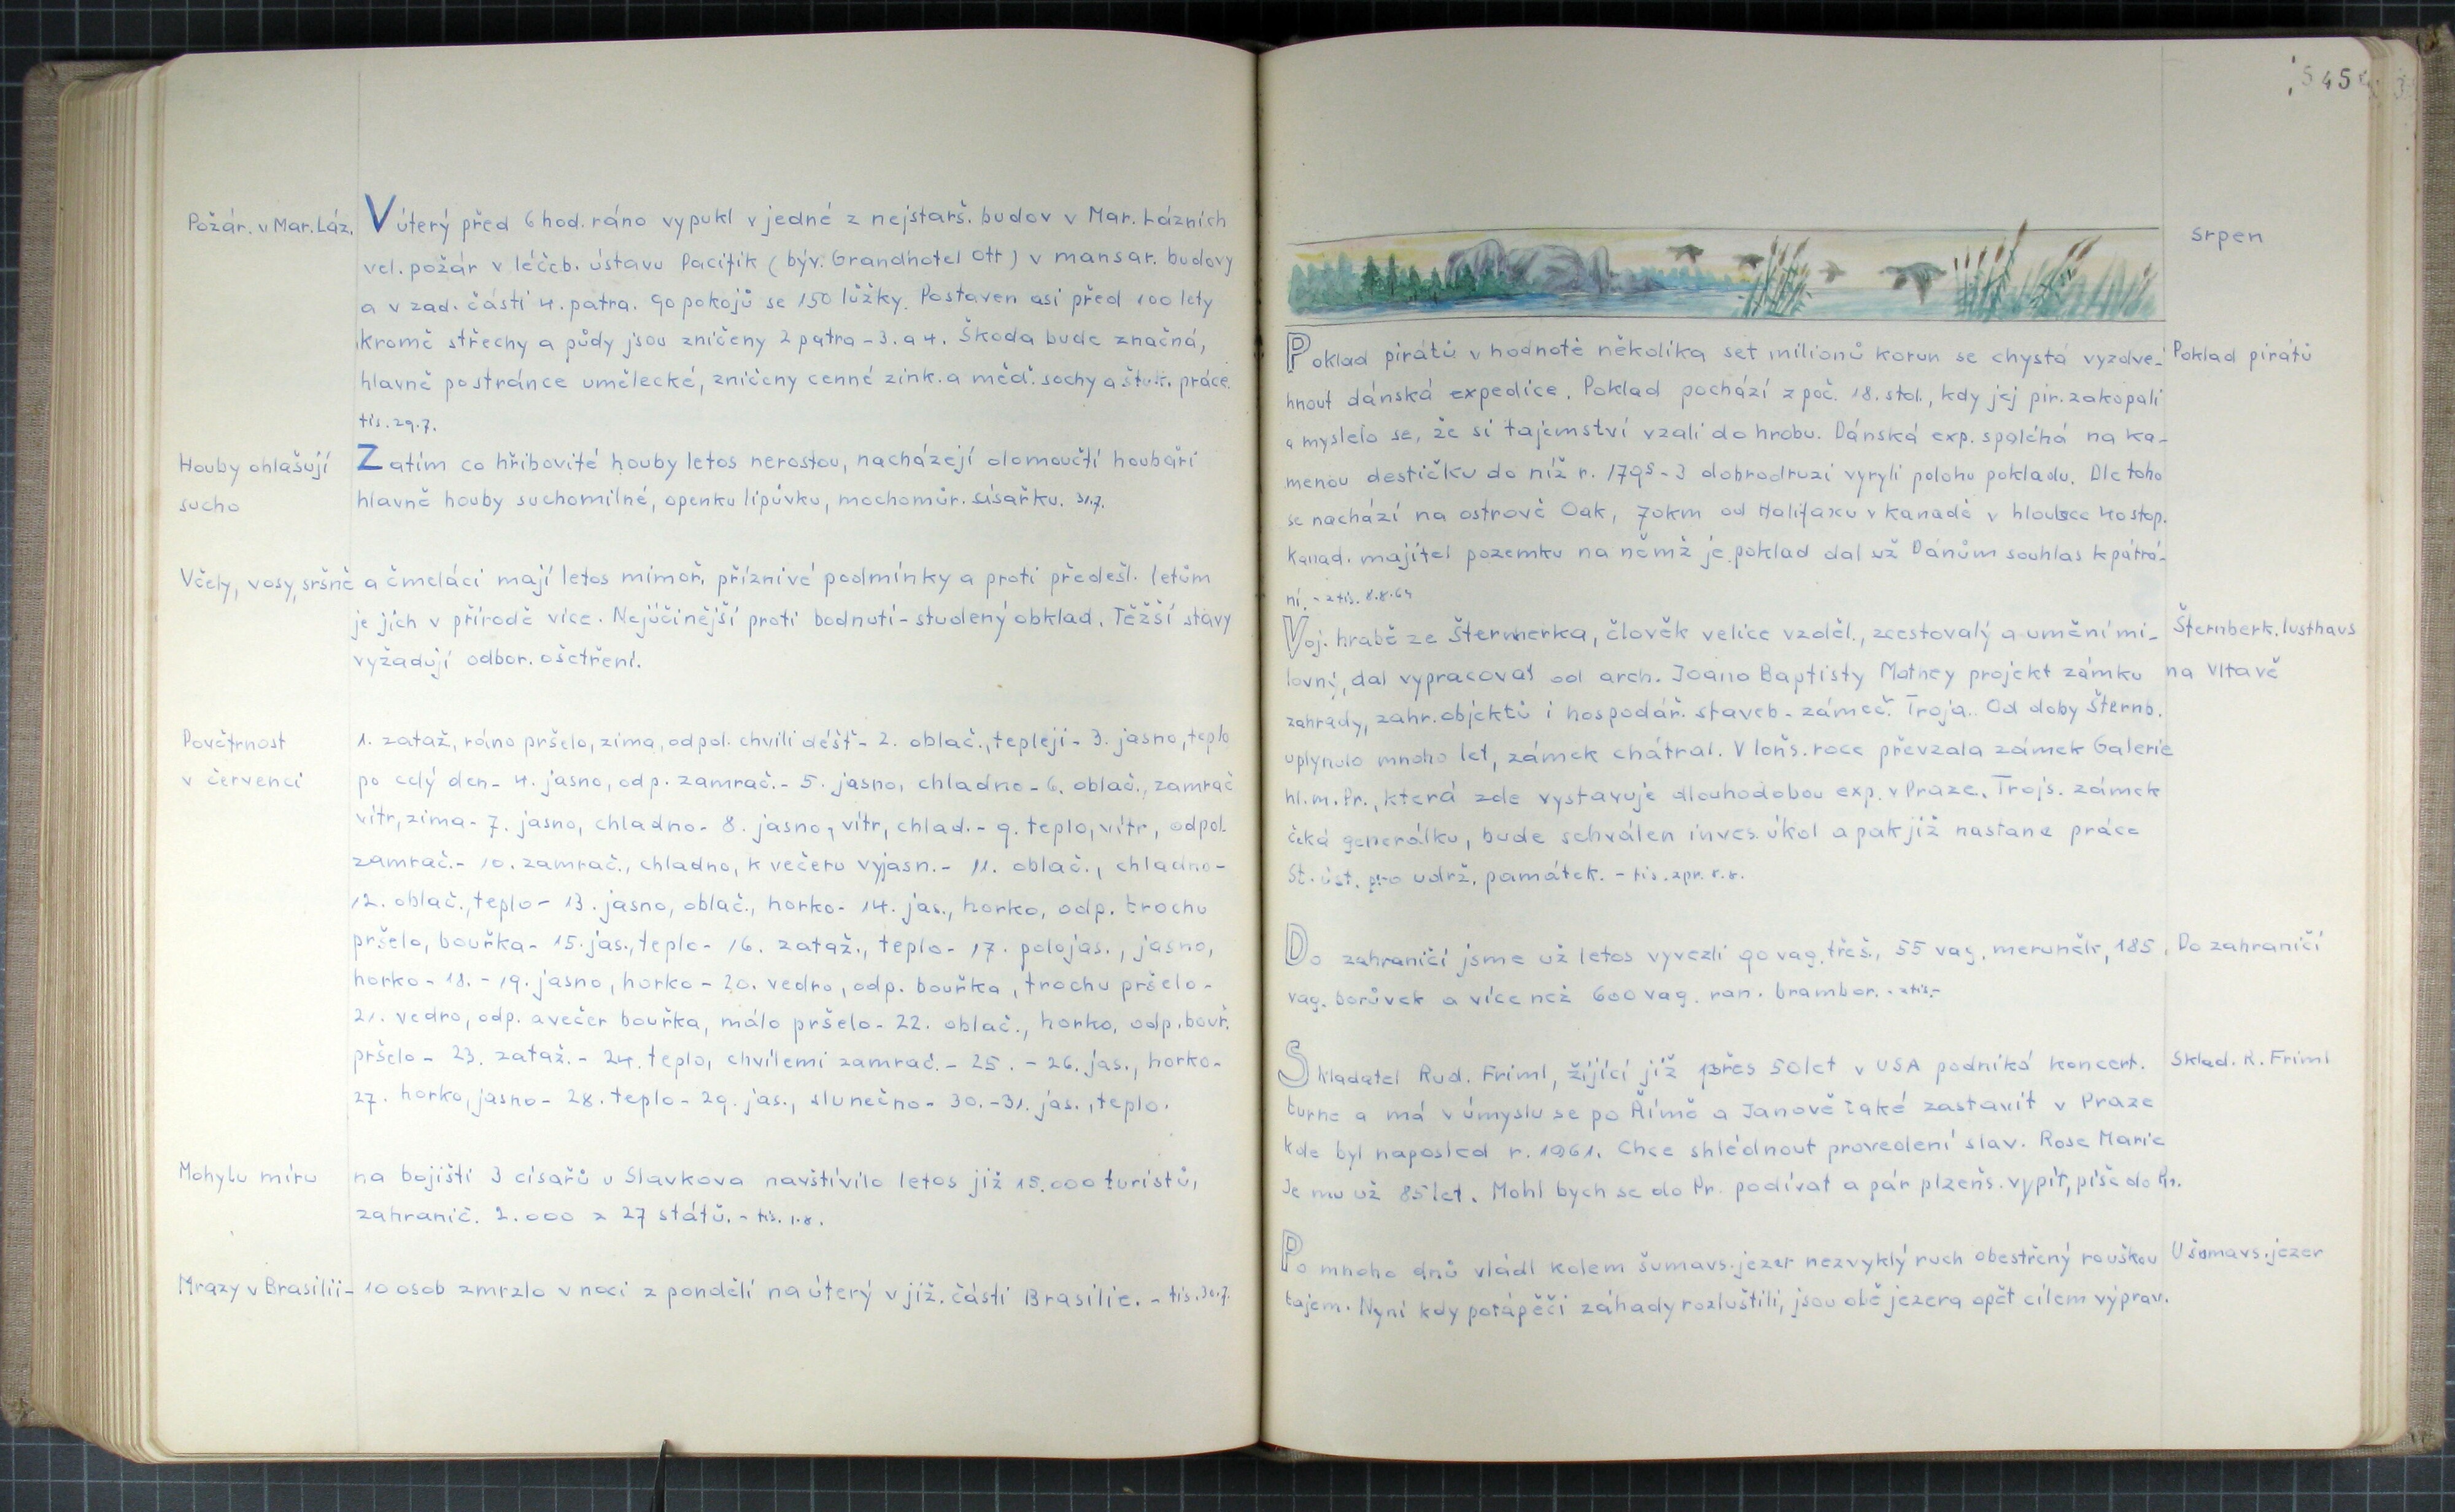 Požár. v Mar. Láz.
V úterý před 6 hod. ráno vypukl v jedné z nejstarš. budov v Mar. Lázních
vel. požár v léčeb. ústavu Pacifik (býv. Grandhotel Ott) v mansar. budovy
a v zad. části 4. patra. 90 pokojů se 150 lůžky. Postaven asi před 100 lety
kromě střechy a půdy jsou zničeny 2 patra - 3. a 4. Škoda bude značná,
hlavně po stránce umělecké, zničeny cenné zink. a měď. sochy a štuk. práce.
tis. 29.7.
Houby ohlašují
sucho
Zatím co hřibovité houby letos nerostou, nacházejí olomoučtí houbaři
hlavně houby suchomilné, openku lipúvku, mochomůr. císařku. 31.7.
Včely, vosy, sršně a čmeláci mají letos mimoř. příznivé podmínky a proti předešl. letům
je jich v přírodě více. Nejúčinější proti bodnutí - studený obklad. Těžší stavy
vyžadují odbor. ošetření.
Povětrnost
v červenci
1. zataž, ráno pršelo, zima, odpol. chvíli déšť - 2. oblač., tepleji - 3. jasno, teplo
po celý den - 4. jasno, odp. zamrač. - 5. jasno, chladno - 6. oblač., zamrač
vítr, zima - 7. jasno, chladno - 8. jasno, vítr, chlad. - 9. teplo, vítr, odpol.
zamrač. - 10. zamrač., chladno, k večeru vyjasn. - 11. oblač., chladno -
12. oblač., teplo - 13. jasno, oblač., horko - 14. jas., horko, odp. trochu
pršelo, bouřka - 15. jas., teplo - 16. zataž., teplo - 17. polojas., jasno,
horko - 18. - 19. jasno, horko - 20. vedro, odp. bouřka, trochu pršelo -
21. vedro, odp. a večer bouřka, málo pršelo - 22. oblač., horko, odp. bouř.
pršelo - 23. zataž. - 24. teplo, chvílemi zamrač. - 25. - 26. jas., horko -
27. horko, jasno - 28. teplo - 29. jas., slunečno - 30. - 31. jas., teplo.
Mohylu míru
na bojišti 3 císařů u Slavkova navštívilo letos již 15.000 turistů,
zahranič. 2.000 z 27 států. - tis. 1.8.
Mrazy v Brasilii - 10 osob zmrzlo v noci z pondělí na úterý v již. části Brasilie. - tis. 30.7.
545
srpen
Poklad pirátů v hodnotě několika set milionů korun se chystá vyzdve-
Poklad pirátů
hnout dánská expedice. Poklad pochází z poč. 18. stol., kdy jej pir. zakopali
a myslelo se, že si tajemství vzali do hrobu. Dánská exp. spoléhá na ka-
menou destičku do níž r. 1795 - 3 dobrodruzi vyryli polohu pokladu. Dle toho
se nachází na ostrově Oak, 70km od Halifaxu v Kanadě v hloubce 40 stop.
Kanad. majitel pozemku na němž je poklad dal už Dánům souhlas k pátrá-
ní. - z tis. 8.8.64
Voj. hrabě ze Štermerka, člověk velice vzděl., zcestovalý a umění mi-
Šternberk. lusthaus
na Vltavě
lovný, dal vypracovat od arch. Joano Baptisty Mathey projekt zámku
zahrady, zahr. objektů i hospodář. staveb - zámeč. Troja. Od doby Šternb.
uplynulo mnoho let, zámek chátral. V loňs. roce převzala zámek Galerie
hl. m. Pr., která zde vystavuje dlouhodobou exp. v Praze. Trojs. zámek
čeká generálku, bude schválen inves. úkol a pak již nastane práce
St. úst. pro udrž. památek. - tis. zpr.
Do zahraničí jsme už letos vyvezli 90 vag. třeš., 55 vag. meruněk, 185
Do zahraničí
vag. borůvek a více než 600 vag. ran. brambor. - z tis. -
Skladatel Rud. Friml, žijící již přes 50 let v USA podniká koncert.
Sklad. R. Friml
turne a má v úmyslu se po Římě a Janově také zastavit v Praze
kde byl naposled r. 1961. Chce shlédnout provedení slav. Rose Marie
Je mu už 85 let. Mohl bych se do Pr. podívat a pár plzeňs. vypít, píše do Pr.
Po mnoho dnů vládl kolem šumavs. jezer nezvyklý ruch obestřený rouškou
U šumavs. jezer
tajem. Nyní kdy potápěči záhady rozluštili, jsou obě jezera opět cílem výprav.